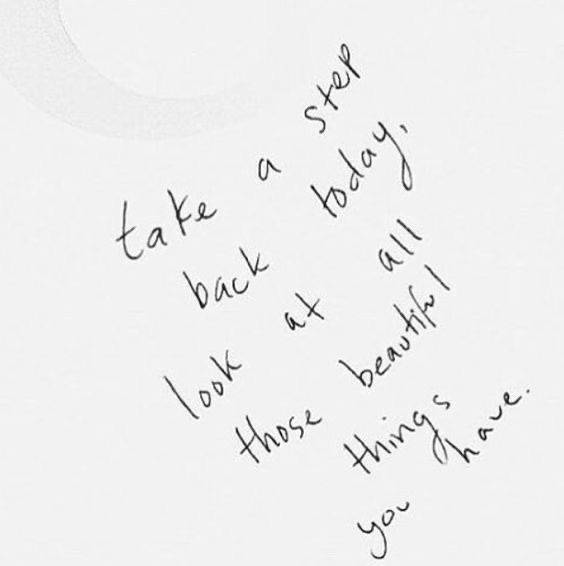 take a step
back today,
look at all
those beautiful
things
you have.